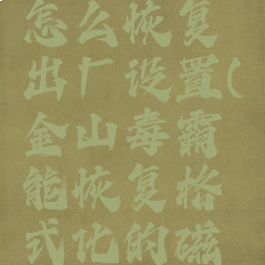 怎么恢复
出厂设置(
金山毒霸
能恢复格
式化的磁